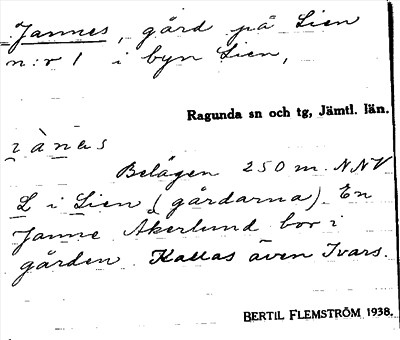 Jannes, gård på Lien
n:r 1 i byn Lien,
Ragunda sn och tg, Jämtl. län.
Belägen 250 m. NNV
L i Lien (gårdarna). En
Janne Åkerlund bor i
gården. Kallas även Ivars.
BERTIL FLEMSTRÖM 1938.